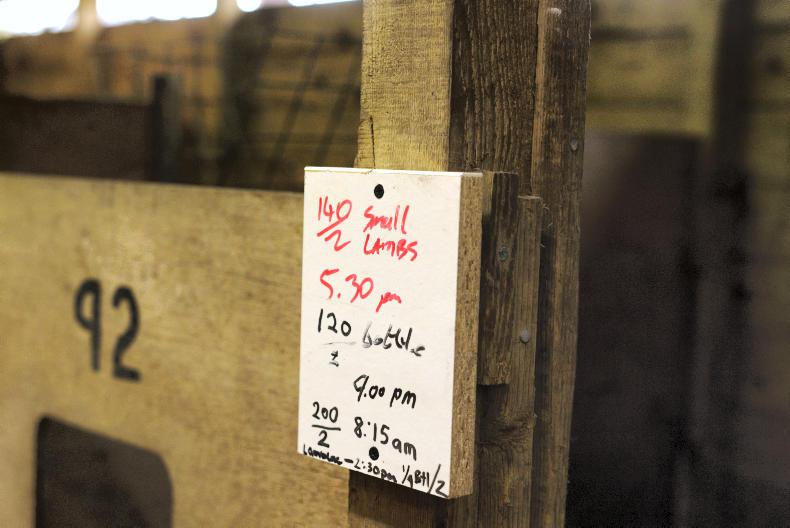 92
140/2 Small
LAMBS
5.30 pm
120 bottle
9.00 pm
200/2 8:15am
- 2:30pm